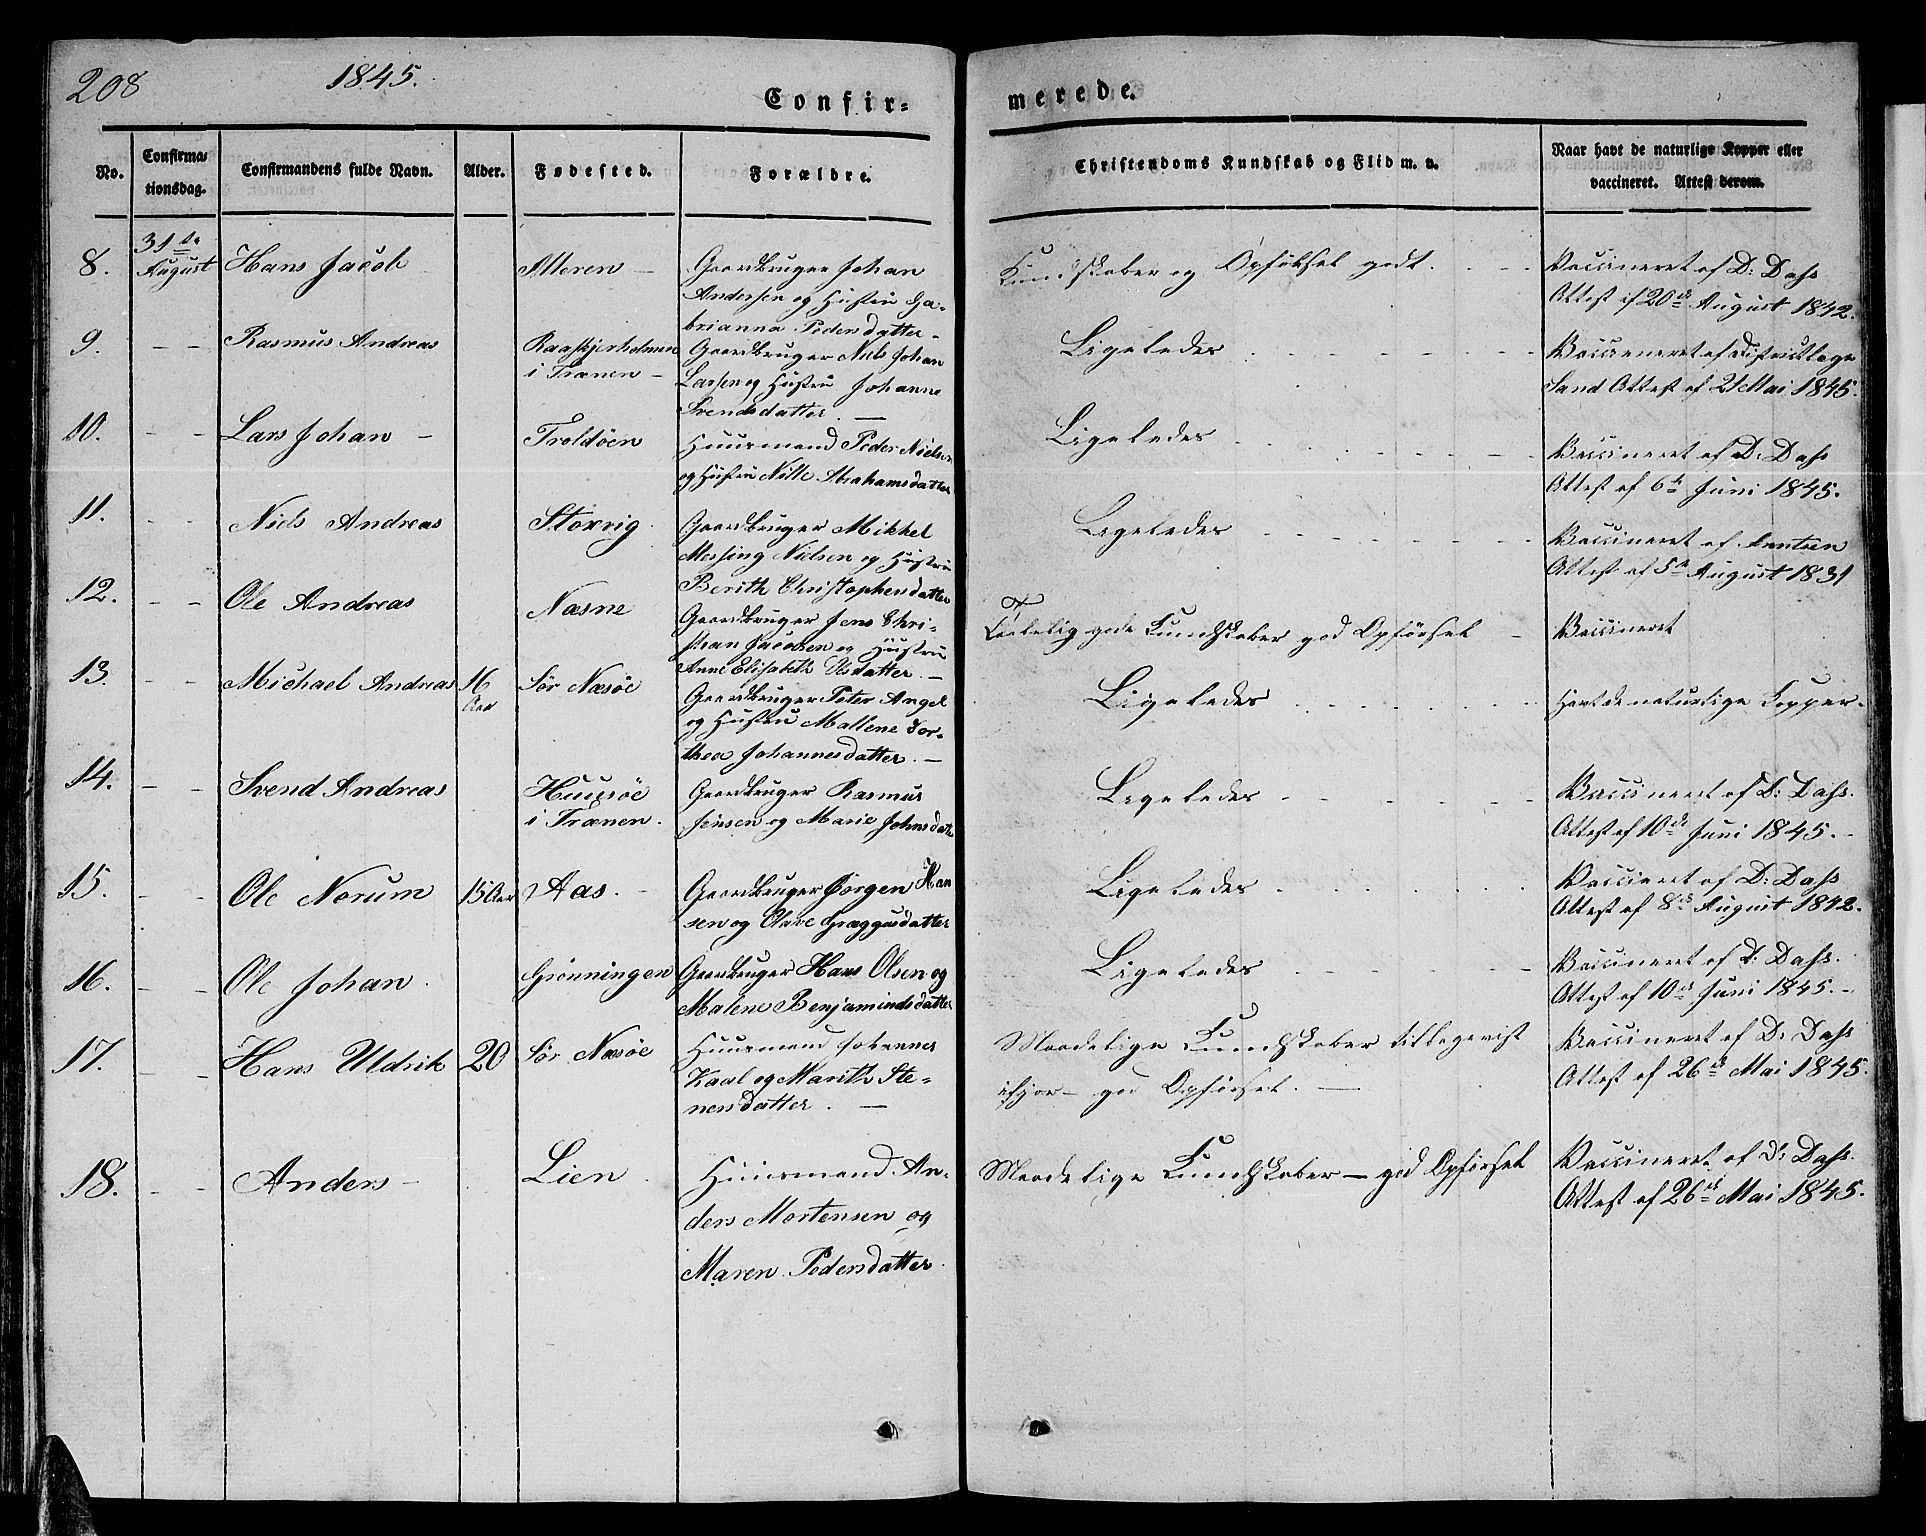 208
1845.
Confir-
merede.
No.
Confirma-
tionsdag.
Confirmandens fulde Navn.
Alder.
Fødested.
Forældre.
Christendoms Kundskab og Flid m. v.
Naar havt de naturlige Kopper eller
vaccineret. Attest derom.
8. 31te August Hans Jacob Alteren - Gaardbruger Johan
Andersen og Hustru Ga-
brianna Pedersdatter -
Kundskaber og Opførsel godt.
Vaccineret af D: Dahs
Attest af 20de August 1842.
9. - - Rasmus Andreas Raaskjerholmen
i Trænen -
Gaardbruger Niels Johan
Larsen og Hustru Johanne
Svendsdatter. -
Ligeledes
Vaccineret af Districtlæge
Sand Attest af 21 Mai 1845.
10. - - Lars Johan - Troldøen
Huusmand Peder Nielsen
og Hustru Nille Abrahamsdatter
Ligeledes
Vaccineret af D. Dahs
Attest af 6te Juni 1845.
11. - - Niels Andreas Stoxvig
Gaardbruger Mikkel
Messing Nielsen og Hustru
Berith Christophersdatter
Ligeledes
Vaccineret af
Attest af 5te August 1831
12. - - Ole Andreas Næsne
Gaardbruger Jens Chri-
stian Jacobsen og Hustru
Anne Elisabeth Olsdatter. -
Taalelig gode Kundskaber god Opførsel -
Vaccineret
13. - - Michael Andreas 16 Aar Sør Næsøe
Gaardbruger Peter Angel
og Hustru Mallene Dor-
thea Johannesdatter. -
Ligeledes
Havt de naturlige Kopper.
14. - - Svend Andreas Huusøe
i Trænen.
Gaardbruger Rasmus
Jensen og Marie Johnsdatr
Ligeledes
Vaccineret af D: Dahs.
Attest af 10de Juni 1845. -
15. - - Ole Norum 15 Aar Aas. -
Gaardbruger Jørgen Han
sen og Olave Græggusdatter
Ligeledes
Vaccineret af D: Dahs
Attest af 8de August 1842.
16. - - Ole Johan. Grønningen
Gaardbruger Hans Olsen og
Malene Benjamindsdatter
Ligeledes
Vaccineret af D: Dahs.
Attest af 10de Juni 1845. -
17. - - Hans Uldrik 20 Sør Næsøe
Huusmand Johannes
Kaal og Marith Ste-
nersdatter. -
Maadelige Kundskaber tilbagevist
ifjor - god Opførsel. -
Vaccineret af D: Dahs
Attest af 26de Mai 1845.
18. - - Anders - Lien.
Huusmand An-
ders Mortensen og
Maren Pedersdatter.
Maadelige Kundskaber - god Opførsel
Vaccineret af D: Dahs.
Attest af 26de Mai 1845.